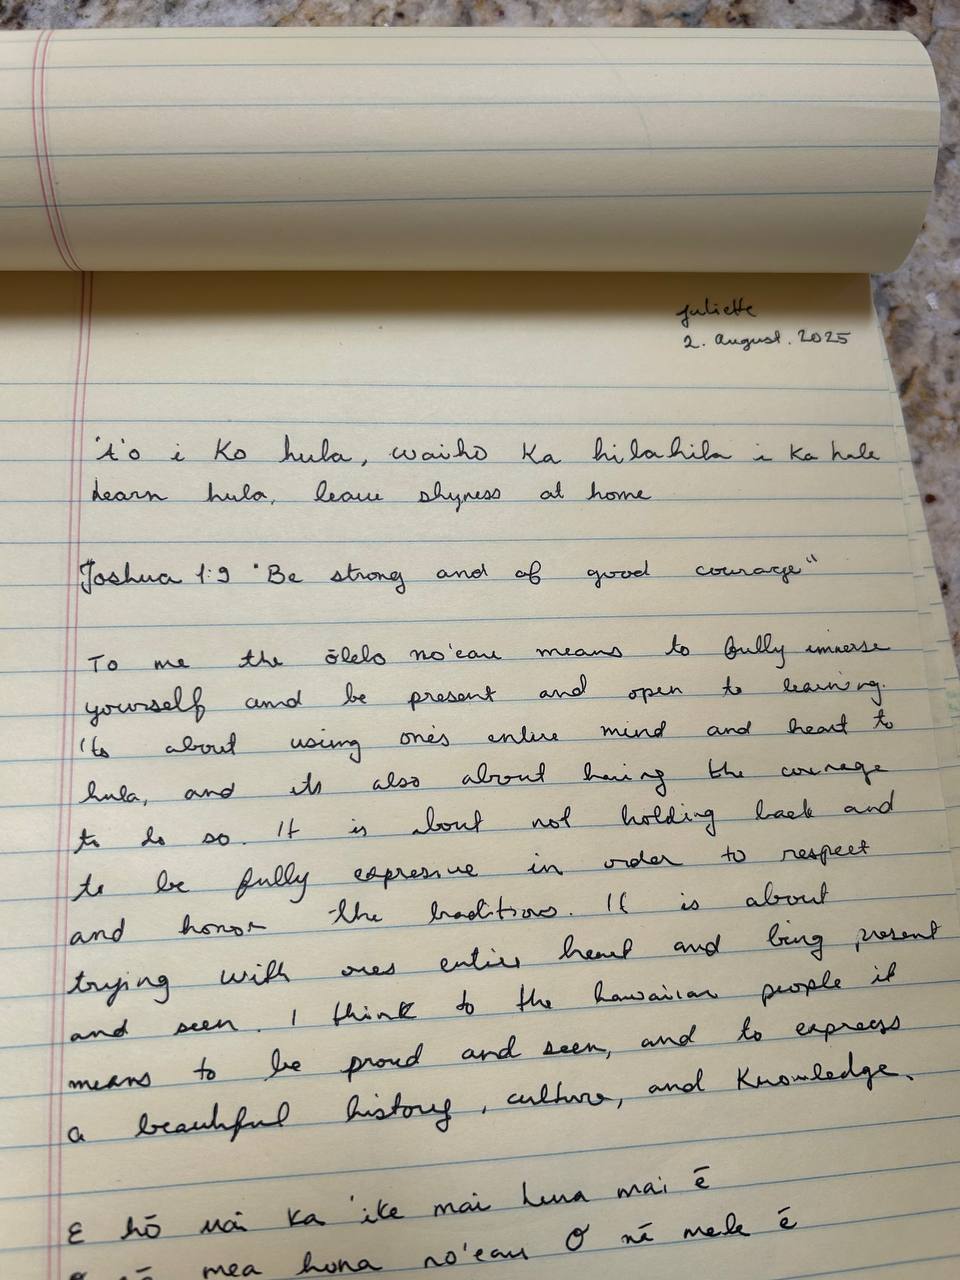 Juliette
2. August. 2025
'A'o i ko hula, waiho ka hilahila i ka hale
Learn hula, leave shyness at home
Joshua 1:9 "Be strong and of good courage"
To me the ōlelo no'eau means to fully immerse
yourself and be present and open to learning.
It's about using one's entire mind and heart to
hula, and its also about having the courage
to do so. It is about not holding back and
to be fully expressive in order to respect
and honor the traditions. It is about
trying with ones entire heart and being present
and seen. I think to the hawaiian people it
means to be proud and seen, and to express
a beautiful history, culture, and knowledge.
E hō mai ka 'ike mai luna mai ē
mea huna no'eau O nā mele ē